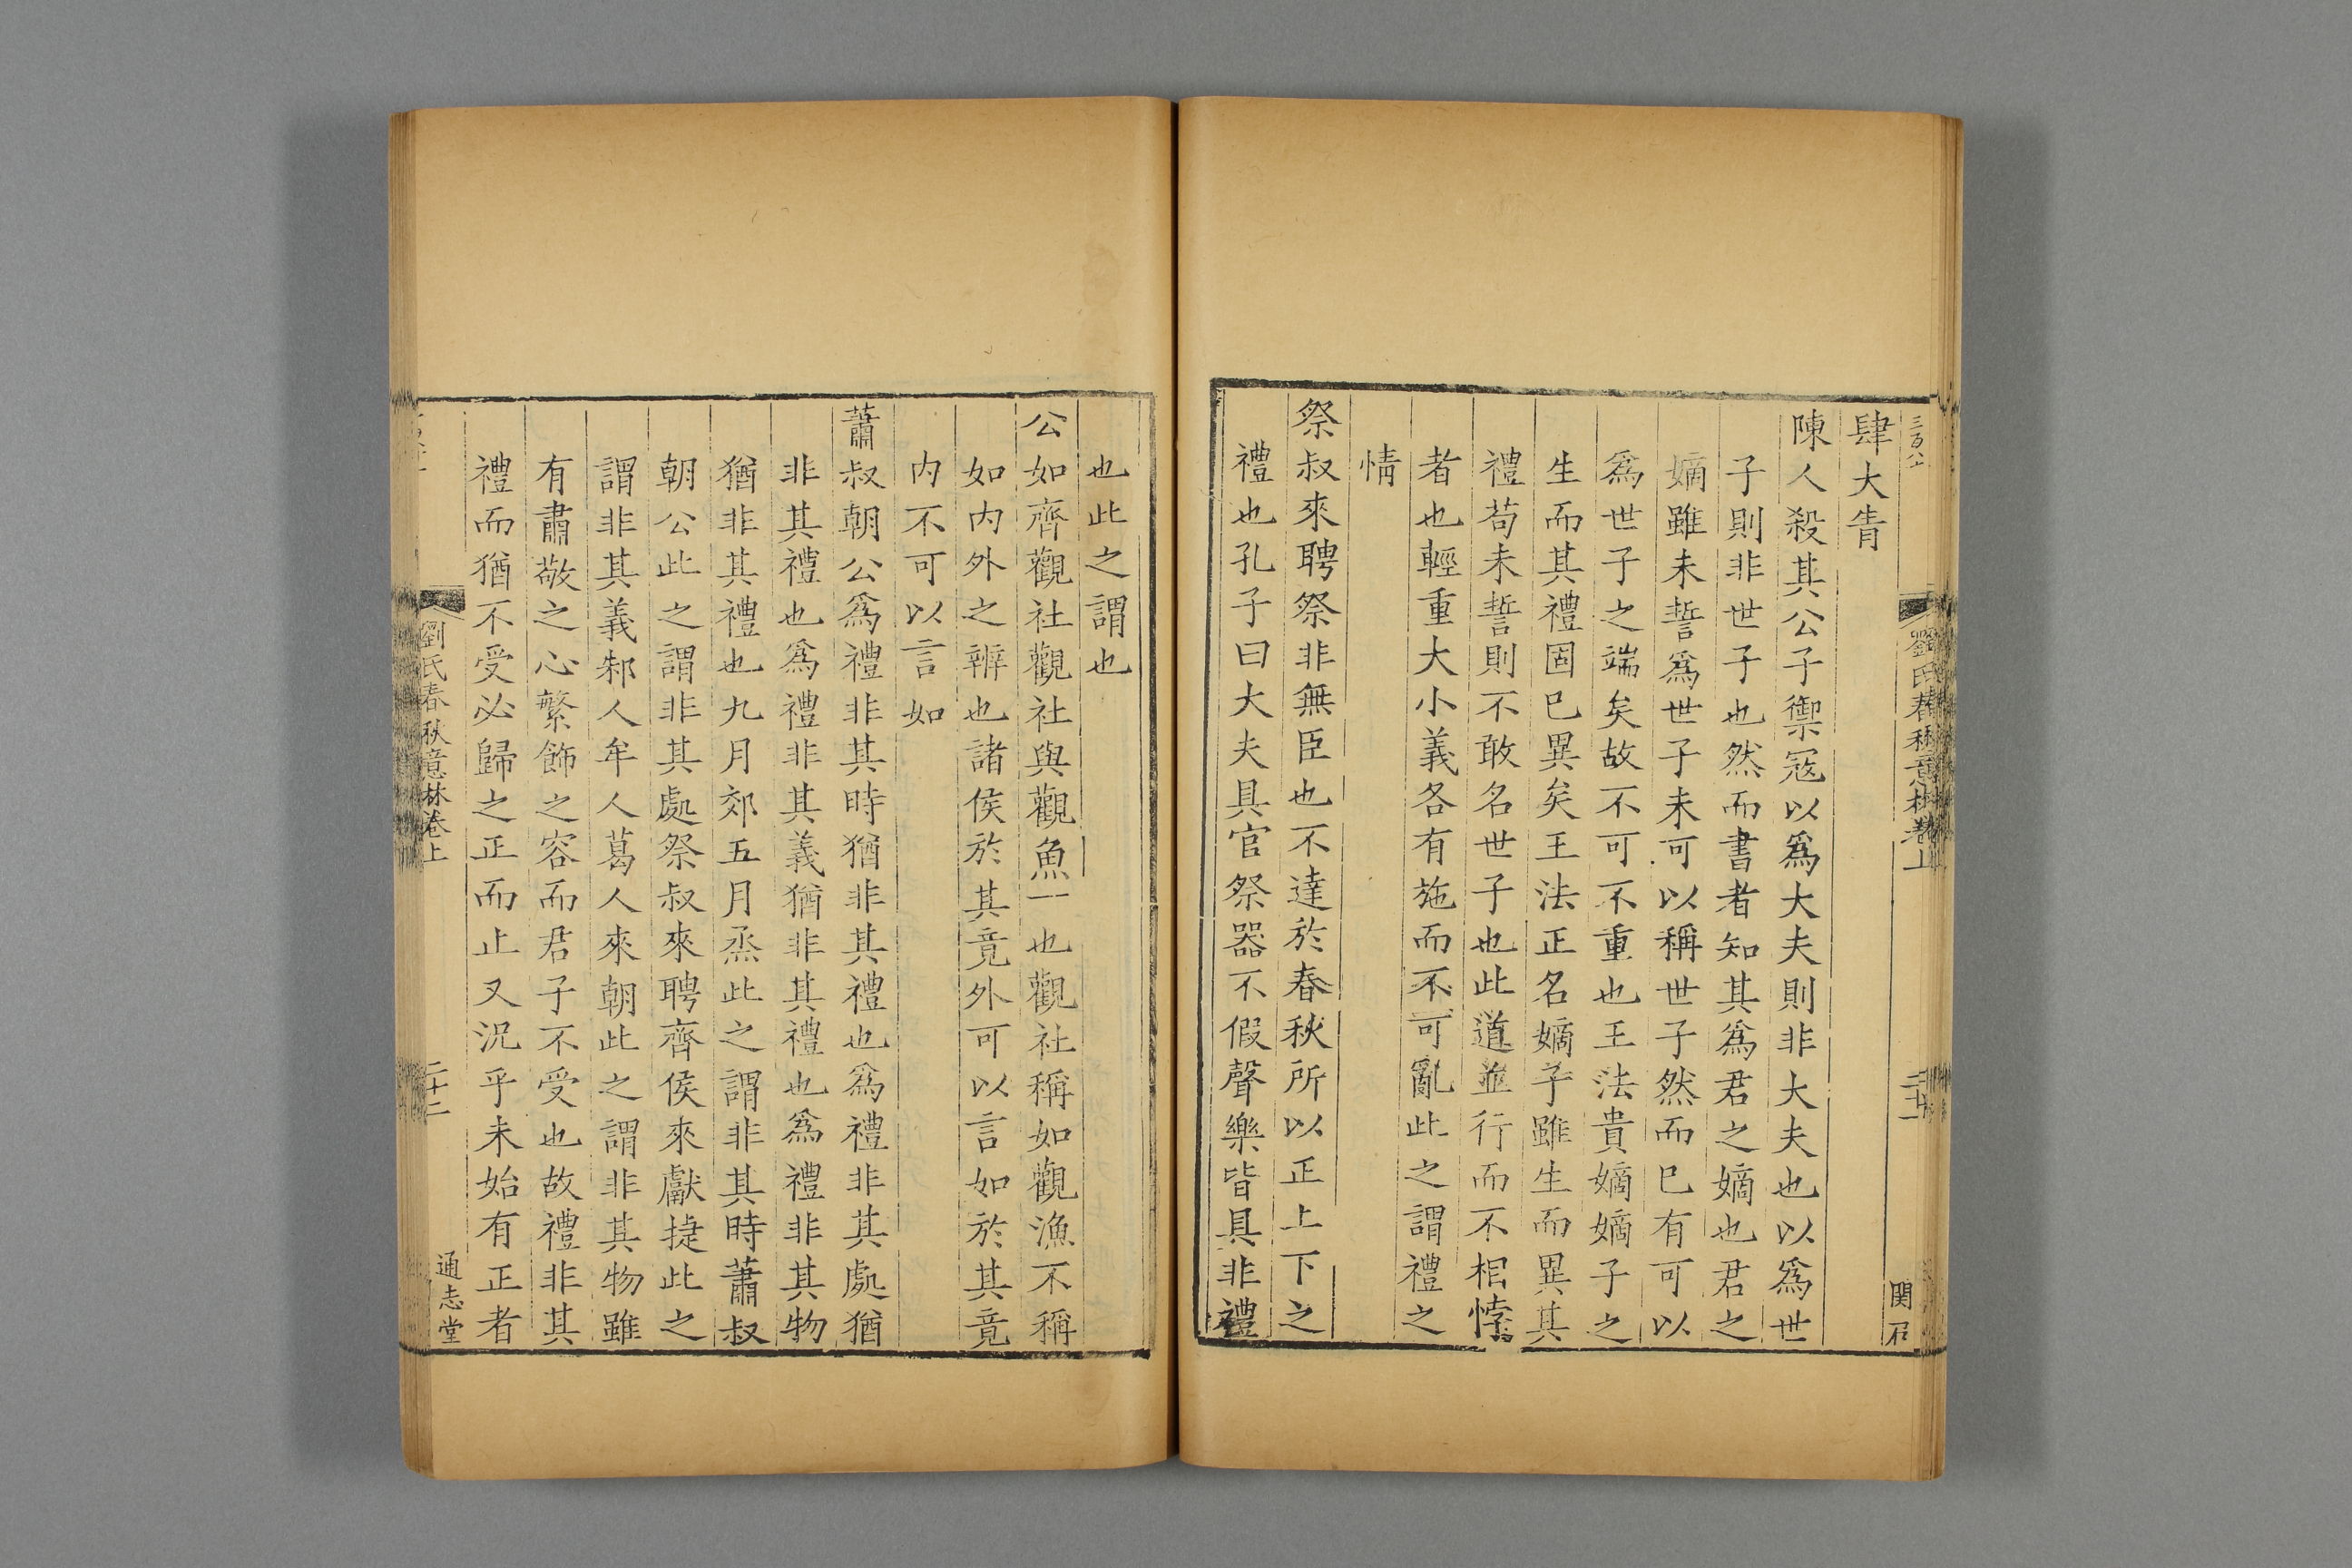 劉氏春秋意林卷上
二十一
肆大眚
陳人殺其公子禦寇以爲大夫則非大夫也以爲世
子則非世子也然而書者知其爲君之嫡也君之
嫡雖未誓爲世子未可以稱世子然而巳有可以
爲世子之端矣故不可不重也王法貴嫡嫡子之
生而其禮固巳異矣王法正名嫡子雖生而異其
禮苟未誓則不敢名世子也此道並行而不相悖
者也輕重大小義各有施而不可亂此之謂禮之
情
祭叔來聘祭非無臣也不達於春秋所以正上下之
禮也孔子曰大夫具官祭器不假聲樂皆具非禮
也此之謂也
公如齊觀社觀社與觀魚一也觀社稱如觀漁不稱
如内外之辨也諸侯於其竟外可以言如於其竟
内不可以言如
蕭叔朝公爲禮非其時猶非其禮也爲禮非其處猶
非其禮也爲禮非其義猶非其禮也爲禮非其物
猶非其禮也九月郊五月烝此之謂非其時蕭叔
朝公此之謂非其處祭叔來聘齊侯來獻捷此之
謂非其義邾人牟人葛人來朝此之謂非其物雖
有肅敬之心繁飾之容而君子不受也故禮非其
禮而猶不受必歸之正而止又況乎未始有正者
劉氏春秋意林卷上
二十二
通志堂